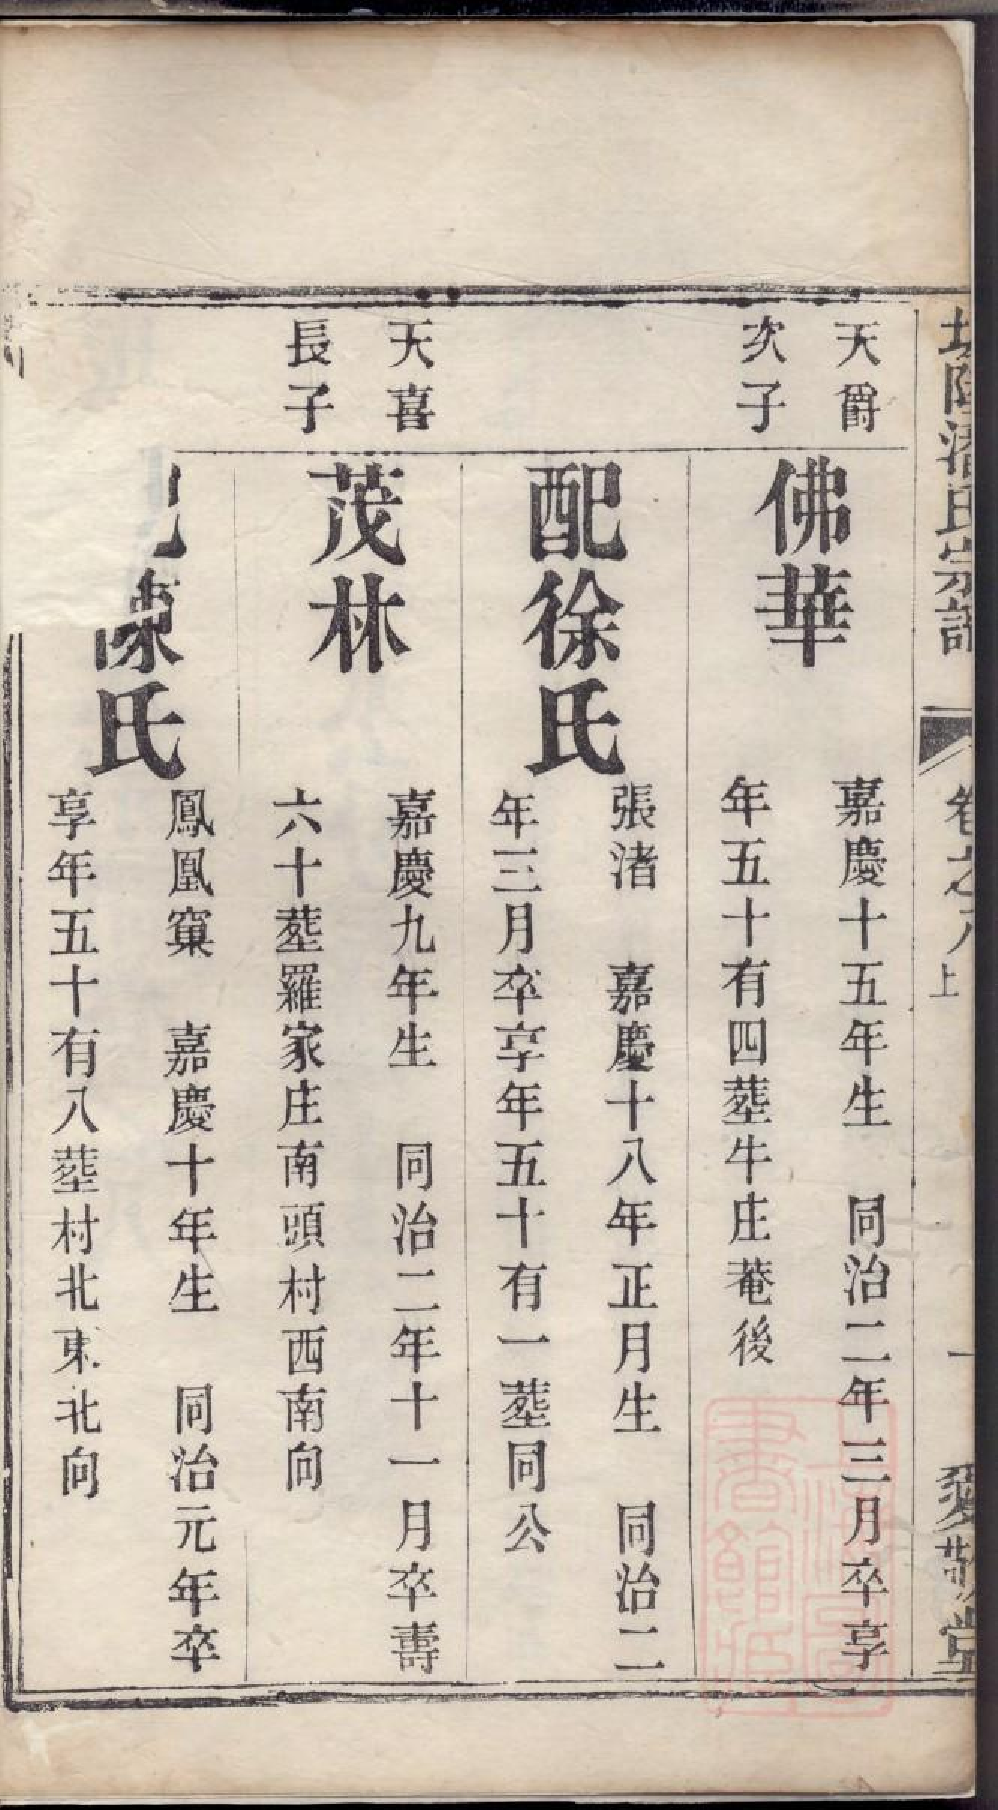 潘氏宗譜
卷之八上
一
愛敬堂
天爵
次子
佛華
嘉慶十五年生 同治二年三月卒享
年五十有四塟牛庄菴後
配徐氏
張渚 嘉慶十八年正月生 同治二
年三月卒享年五十有一塟同公
天喜
長子
茂林
嘉慶九年生 同治二年十一月卒壽
六十塟羅家庄南頭村西南向
陳氏
鳳凰窠 嘉慶十年生 同治元年卒
享年五十有八塟村北東北向